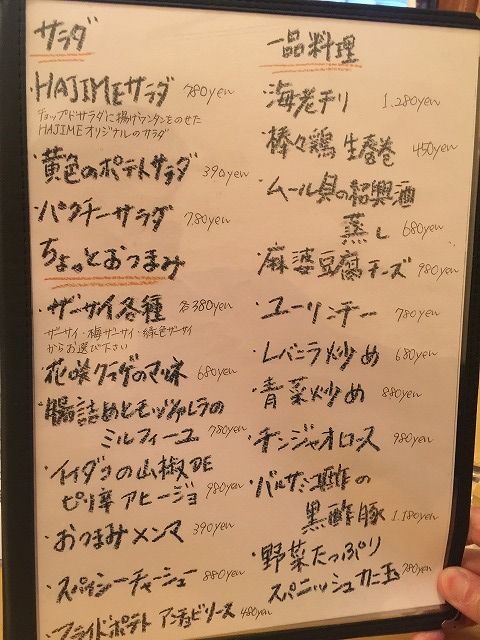 サラダ
HAJIMEサラダ 780yen
チョップドサラダに揚げワンタンをのせた
HAJIMEオリジナルのサラダ
・黄色のポテトサラダ 390yen
・パクチーサラダ 780yen
ちょっとおつまみ
・ザーサイ各種 各380yen
ザーサイ・梅ザーサイ・緑色ザーサイ
からお選び下さい
・花咲クラゲのマリネ 680yen
・腸詰めとモッツァレラの
ミルフィーユ 780yen
・イイダコの山椒DE
ピリ辛アヒージョ 980yen
・おつまみメンマ 390yen
・スパイシーチャーシュー 880yen
・フライドポテト アンチョビソース 480yen
一品料理
・海老チリ 1.280yen
・棒々鶏 生唇巻 450yen
・ムール貝の紹興酒
蒸し 680yen
・麻婆豆腐チーズ 980yen
・ユーリンチー 780yen
・レバニラ炒め 680yen
・青菜炒め 880yen
・チンジャオロース 980yen
・バルサミコ酢の
黒酢豚 1.180yen
・野菜たっぷり
スパニッシュカニ玉 780yen